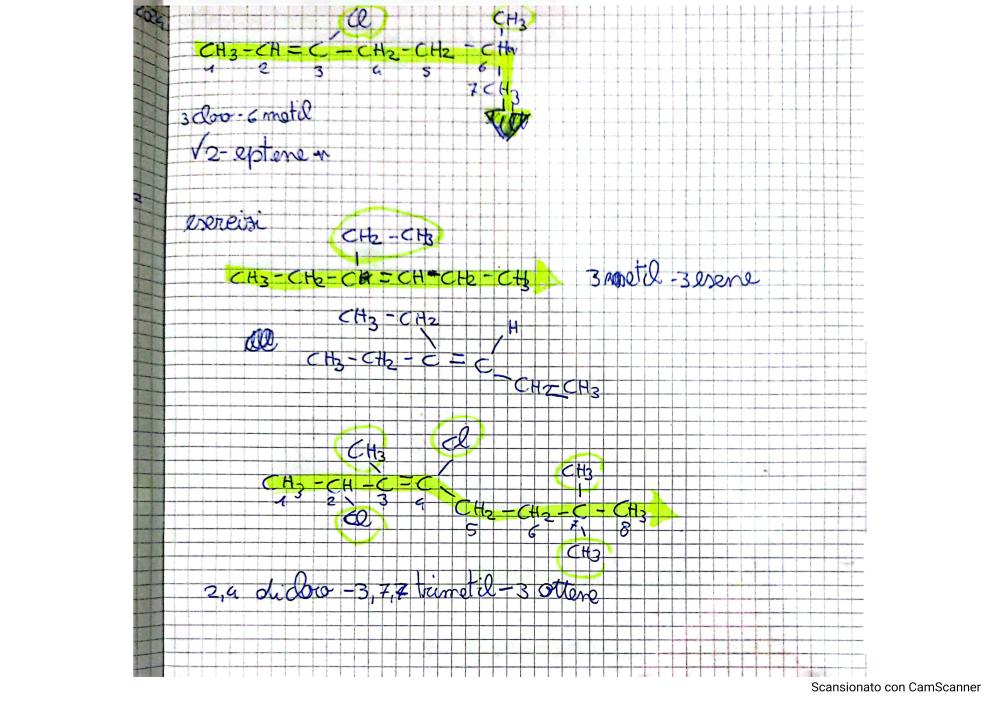 Cl CH3
CH3-CH=C-CH2-CH2-CH
1 2 3 4 5 6
7CH3
3 cloro-6 metil
2-eptene
esercizi
CH2-CH3
CH3-CH2-C=CH-CH2-CH3 3 metil-3 esene
CH3-CH2 H
CH3-CH2-C=C
CH2-CH3
CH3 Cl
CH3-CH-C=C CH3
1 2 3 4
Cl CH2-CH2-C-CH3
5 6 7 8
CH3
2,4 dicloro-3,7,7 trimetil-3 ottene
Scansionato con CamScanner